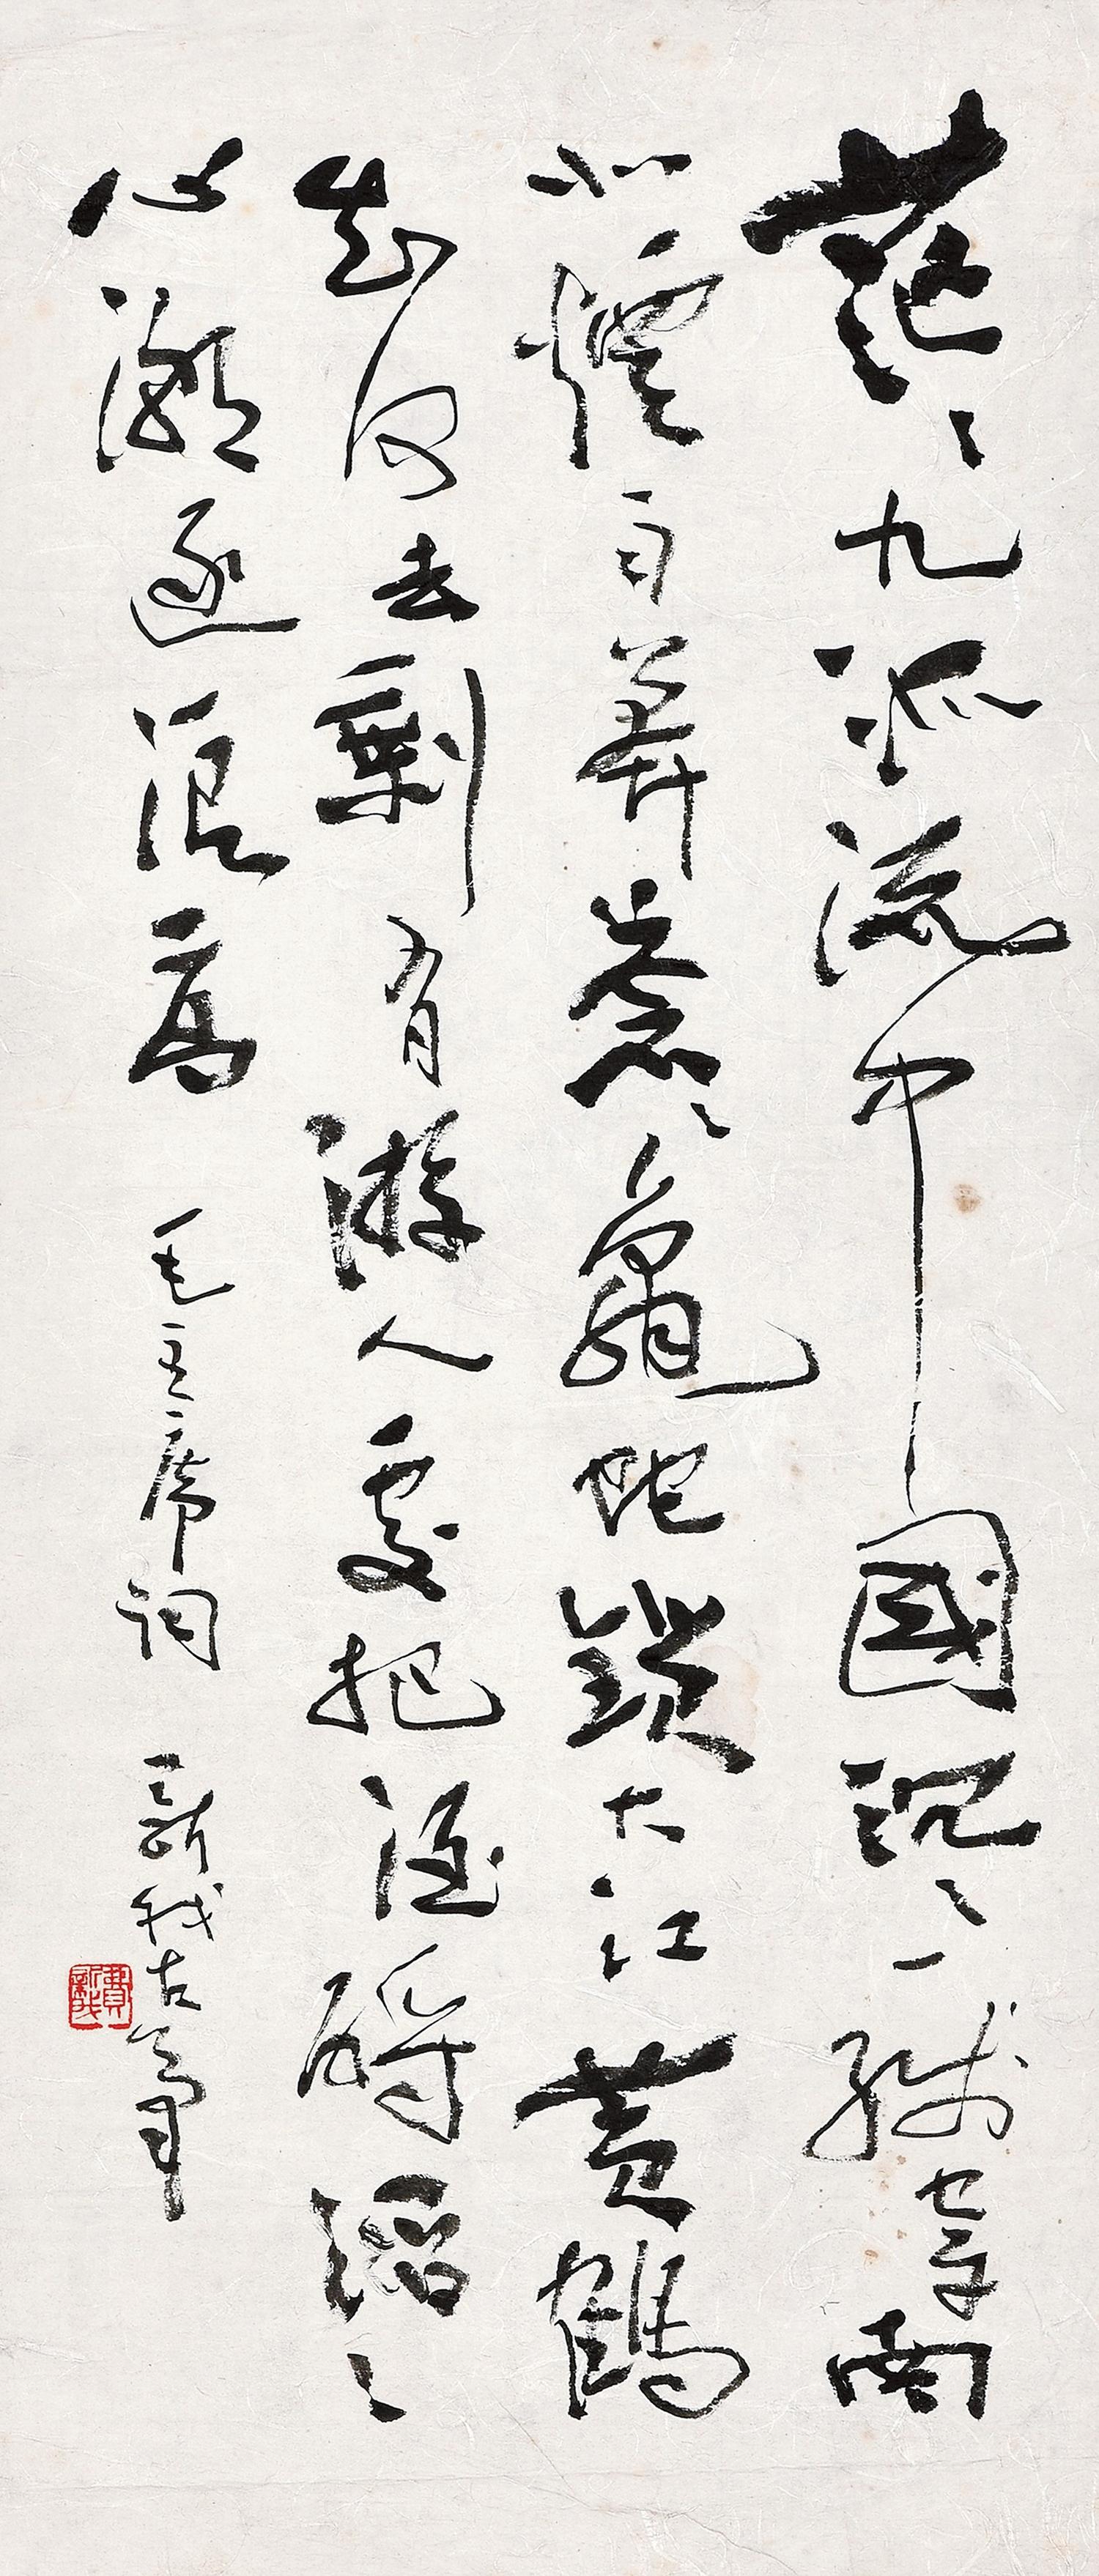 茫〻九派流中國沉〻一綫穿南
北煙雨莽蒼〻龜蛇鎖大江黄鶴
知何去剩有游人處把酒酹滔〻
心潮逐浪高 毛主席詞 新我左筆
費新我